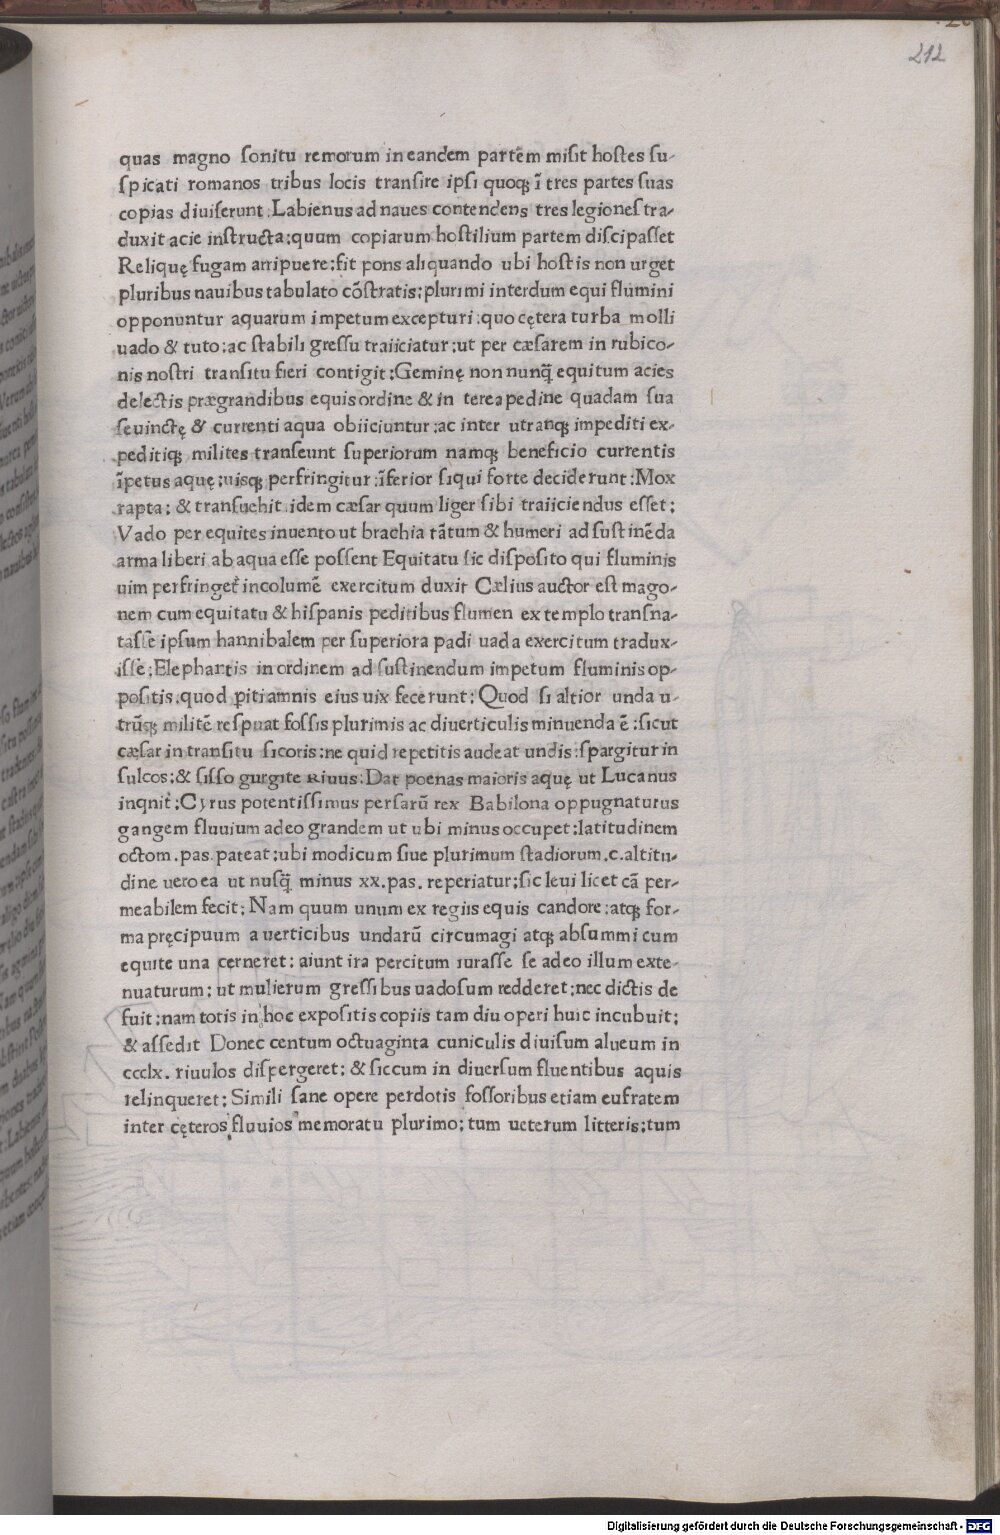 212
quas magno sonitu remorum in eandem partem misit hostes su-
spicati romanos tribus locis transire ipsi quoqꝫ ī tres partes suas
copias diuiserunt: Labienus ad naues contendens tres legiones tra-
duxit acie instructa: quum copiarum hostilium partem discipasset
Reliquę fugam arripuere: fit pons aliquando ubi hostis non urget
pluribus nauibus tabulato cōstratis: plurimi interdum equi flumini
opponuntur aquarum impetum excepturi: quo cętera turba molli
uado & tuto: ac stabili gressu traiiciatur: ut per cæsarem in rubico-
nis nostri transitu fieri contigit: Geminę non nunq̄ equitum acies
delectis prægrandibus equis ordine & in terea pedine quadam sua
seuinctę & currenti aqua obiiciuntur: ac inter utranqꝫ impediti ex-
peditiqꝫ milites transeunt superiorum namqꝫ beneficio currentis
īpetus aquę: uisqꝫ perfringitur: īferior siqui forte deciderunt: Mox
rapta: & transuehit idem cæsar quum liger sibi traiiciendus esset:
Vado per equites inuento ut brachia tātum & humeri ad sustinēda
arma liberi ab aqua esse possent Equitatu sic disposito qui fluminis
uim perfringeꝉ incolumē exercitum duxit Cælius auctor est mago-
nem cum equitatu & hispanis peditibus flumen extemplo transna-
tassē ipsum hannibalem per superiora padi uada exercitum tradux-
isse: Elephantis in ordinem ad sustinendum impetum fluminis op-
positis. quod piti amnis eius uix fecerunt: Quod si altior unda u-
trūqꝫ militē respuat fossis plurimis ac diuerticulis minuenda ē: sicut
cæsar in transitu sicoris: ne quid repetitis audeat undis: spargitur in
sulcos: & sisso gurgite Riuus: Dat poenas maioris aquę ut Lucanus
inqnit: Cyrus potentissimus persarū rex Babilona oppugnaturus
gangem fluuium adeo grandem ut ubi minus occupet: latitudinem
octom. pas. pateat: ubi modicum siue plurimum stadiorum. c. altitu-
dine uero ea ut nusq̄ minus xx. pas. reperiatur: sic leui licet cā per-
meabilem fecit: Nam quum unum ex regiis equis candore: atqꝫ for-
ma pręcipuum a uerticibus undarū circumagi atqꝫ absummi cum
equite una cerneret: aiunt ira percitum iurasse se adeo illum exte-
nuaturum: ut mulierum gressibus uadosum redderet: nec dictis de
fuit: nam totis in hoc expositis copiis tam diu operi huic incubuit:
& assedit Donec centum octuaginta cuniculis diuisum alueum in
ccclx. riuulos dispergeret: & siccum in diuersum fluentibus aquis
relinqueret: Simili sane opere perdotis fossoribus etiam eufratem
inter cęteros fluuios memoratu plurimo: tum ueterum litteris: tum
Digitalisierung gefördert durch die Deutsche Forschungsgemeinschaft - DFG